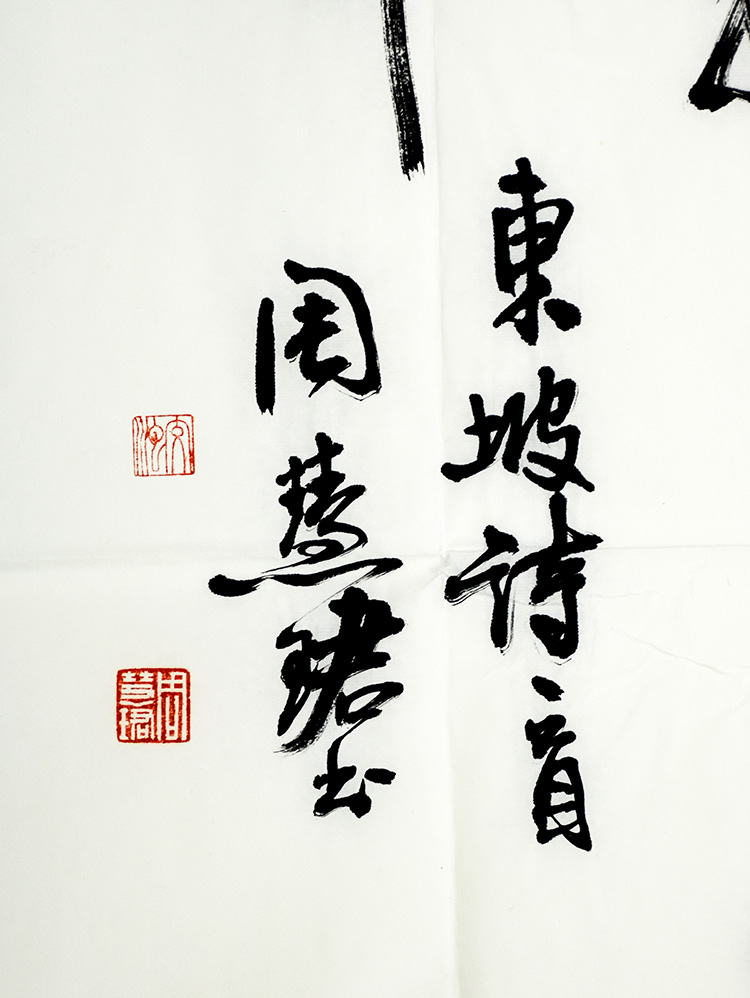 東坡詩一首
周慧珺书
周慧珺